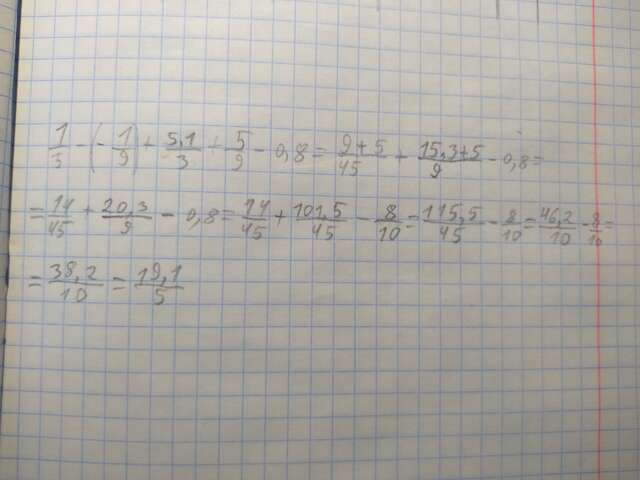 1/5 - (-1/9) + 5,1/3 + 5/9 - 0,8 = 9+5/45 + 15,3+5/9 - 0,8 =
= 14/45 + 20,3/9 - 0,8 = 14/45 + 101,5/45 - 8/10 = 115,5/45 - 8/10 = 46,2/10 - 8/10 =
= 38,2/10 = 19,1/5